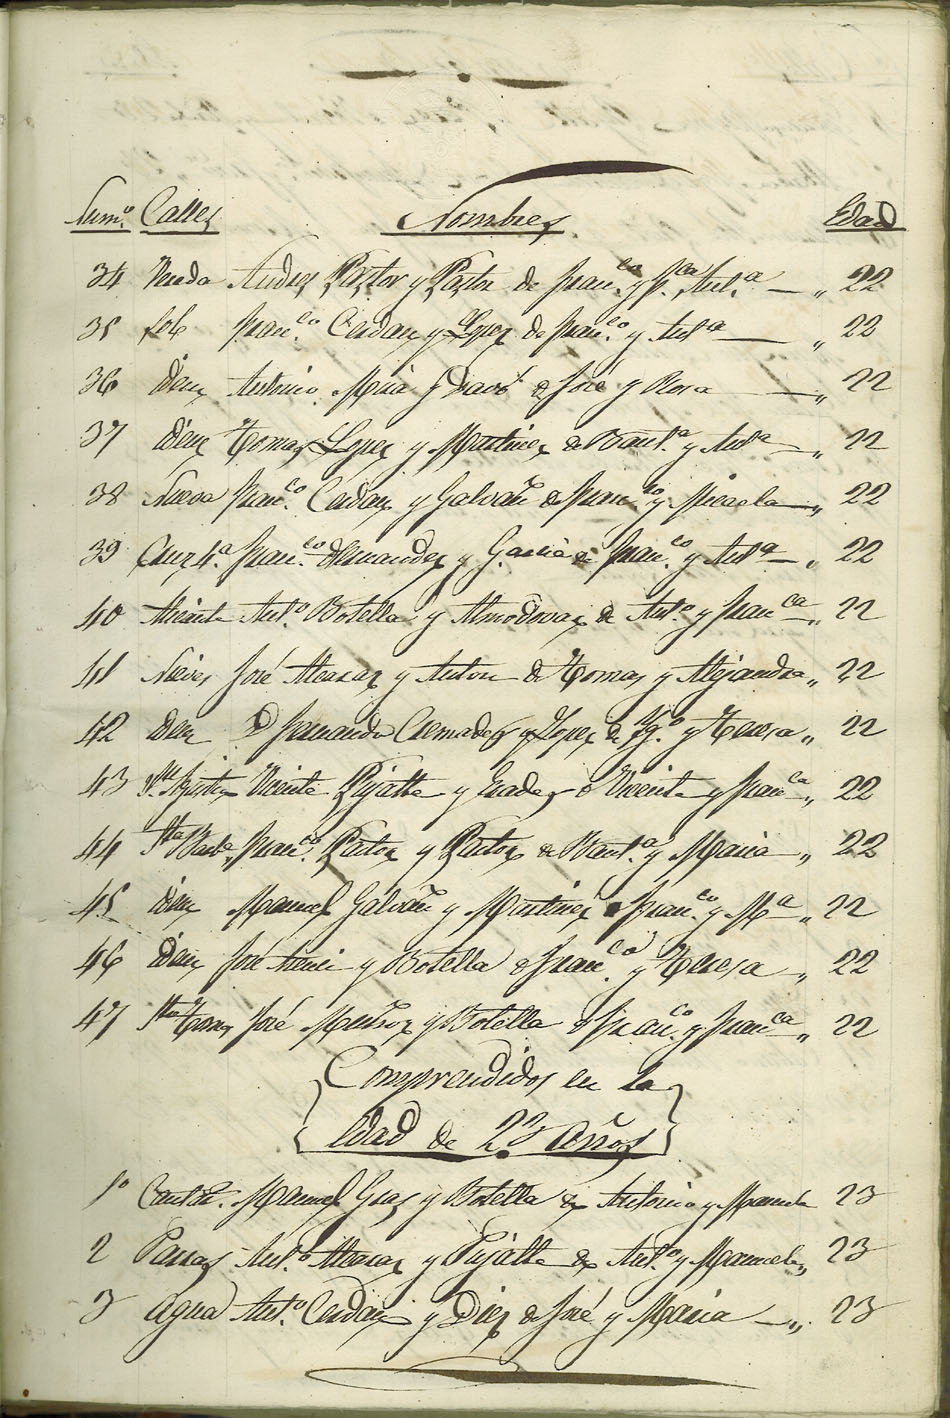 Num.º Calles Nombres Edad
34 Vereda Andres Pastor y Pastor de Fran.ca y Ant.ª — „ 22
35 Sol Fran.co Cerdan y Lopez de Fran.co y Ant.ª — „ 22
36 Idem Antonio Mira y de José y Rosa — „ 22
37 Idem Tomas Lopez y Martinez de Baut.ª y Ant.ª — „ 22
38 Nueva Fran.co Cerdan y Galvañ de Fran.co y Micaela — „ 22
39 Cruz 4.ª Fran.co Hernandez y Garcia de Fran.co y Ant.ª — „ 22
40 Alicante Ant.º Botella y Almodovar de Ant.º y Fran.ca „ 22
41 Nieves José Alcaraz y Anton de Tomas y Alejandra „ 22
42 Idem D. Fernando Cremades y Lopez de Ig.º y Teresa „ 22
43 S.n Agustin Vicente Pujalte y de Vicente y Fran.ca „ 22
44 Sta Barb.ª Fran.co Pastor y Pastor de Baut.ª y Maria „ 22
45 Idem Manuel Galvañ y Martinez Fran.co y M.ª „ 22
46 Idem José y Botella de Fran.co y Teresa „ 22
47 Sto Tomas José Muñoz y Botella de Fran.co y Fran.ca „ 22
Comprendidos en la
Edad de 23 años
1º Manuel Gras y Botella de Antonio y Manuela 23
2 Parras Ant.º Alcaraz y Pujalte de Ant.º y Manuela „ 23
3 Agua Ant.º Cerdan y Diez de José y Maria — „ 23